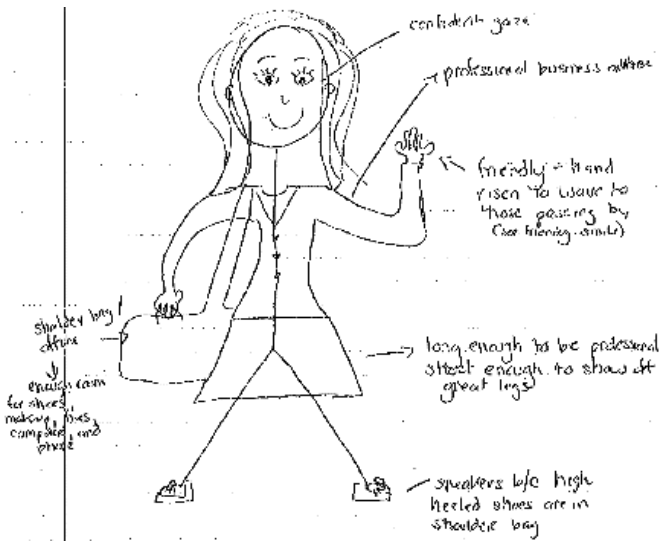 confident gaze
professional business attire
friendly - hand
risen to wave to
those passing by
(see friendly smile)
shoulder bag
enough room
for shoes
computer and
phone
long enough to be professional
short enough to show off
great legs
sneakers b/c high
heeled shoes are in
shoulder bag